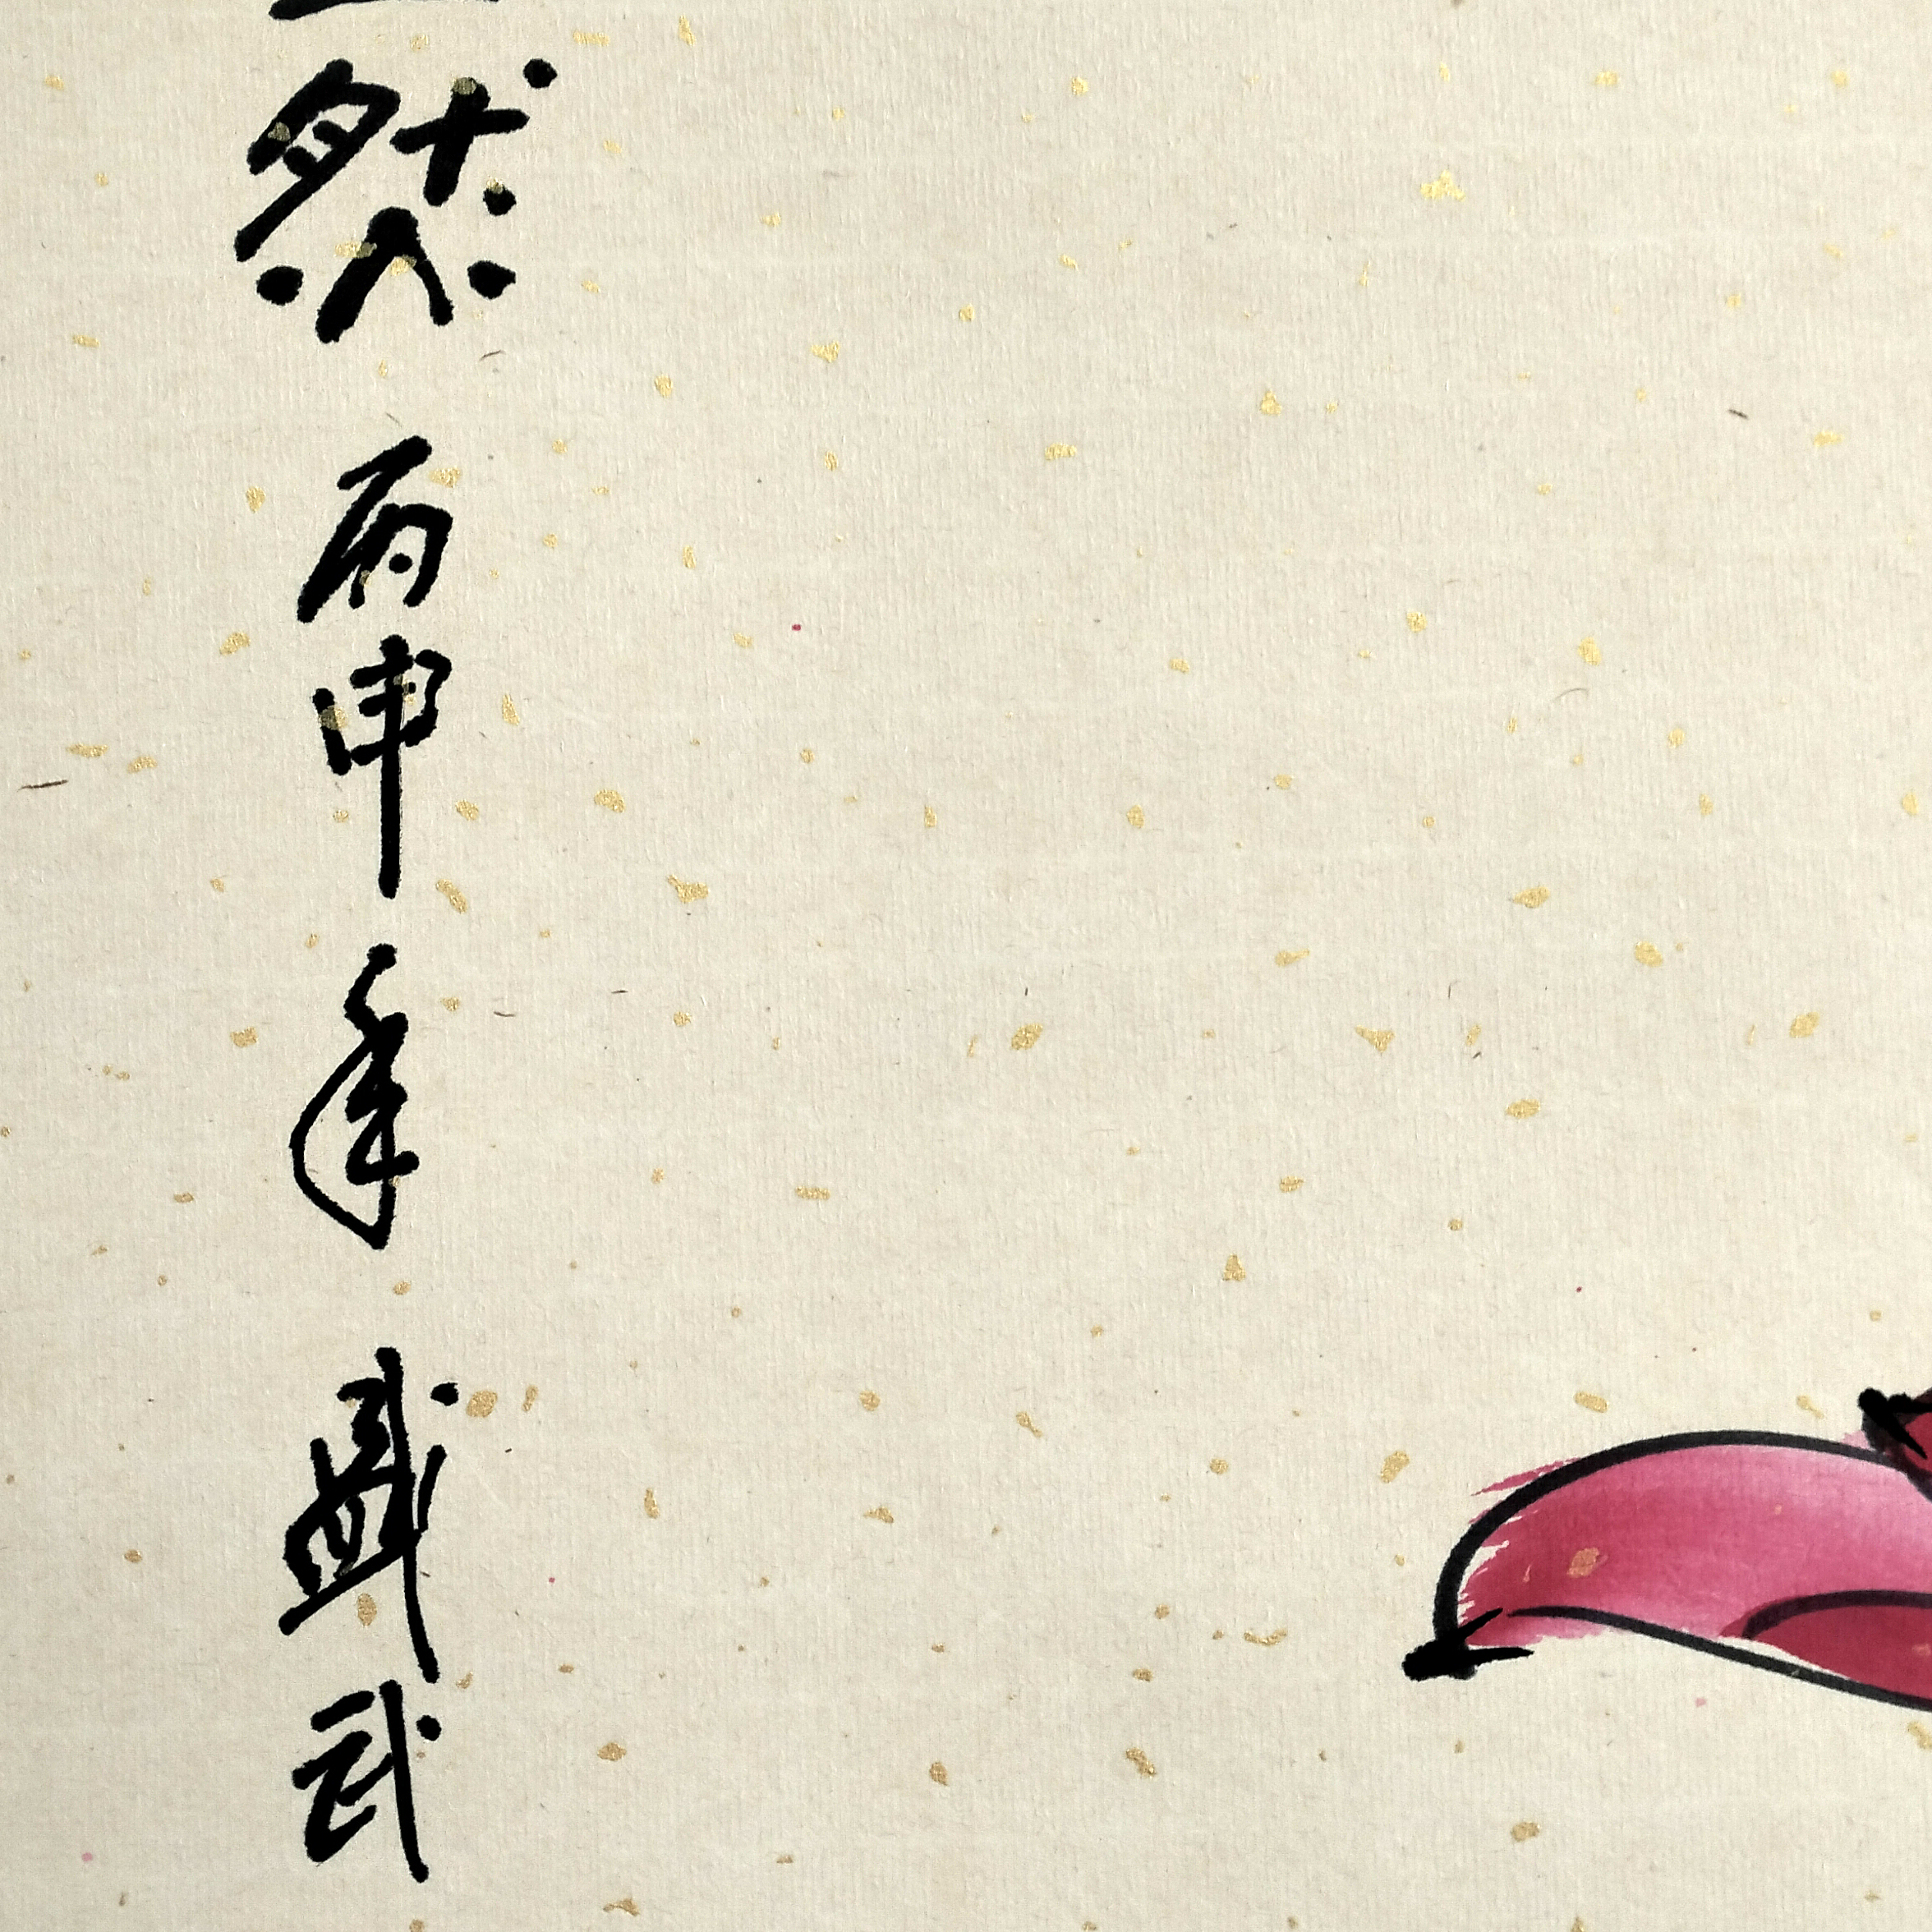 然 丙申年 盛武